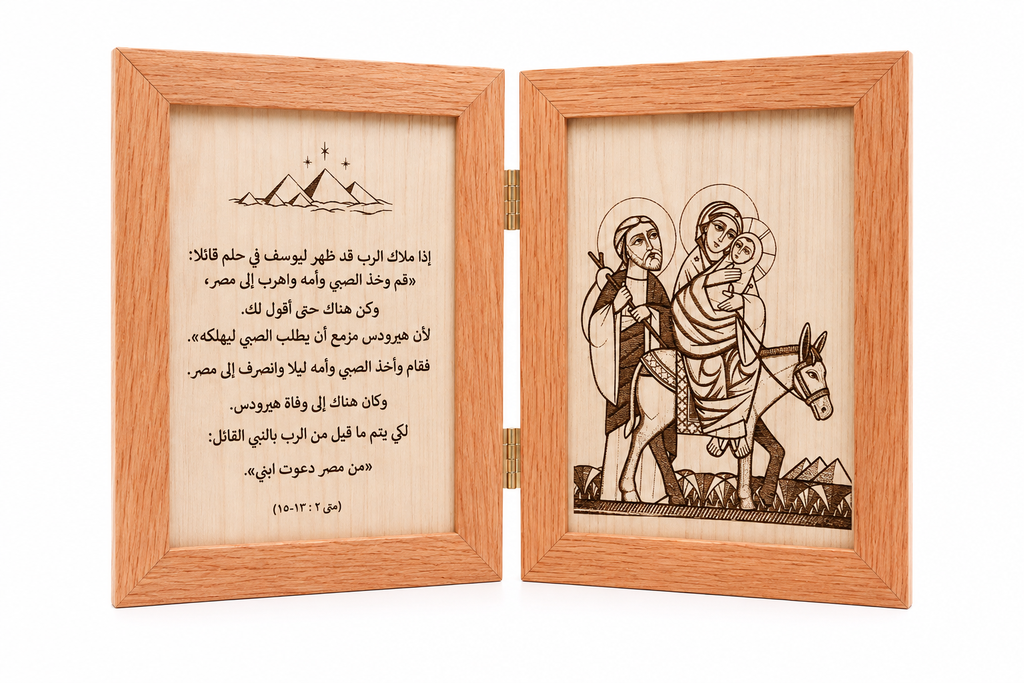 إذا ملاك الرب قد ظهر ليوسف في حلم قائلا:
«قم وخذ الصبي وأمه واهرب إلى مصر،
وكن هناك حتى أقول لك.
لأن هيرودس مزمع أن يطلب الصبي ليهلكه».
فقام وأخذ الصبي وأمه ليلا وانصرف إلى مصر.
وكان هناك إلى وفاة هيرودس.
لكي يتم ما قيل من الرب بالنبي القائل:
«من مصر دعوت ابني».
(متى ٢ : ١٣-١٥)